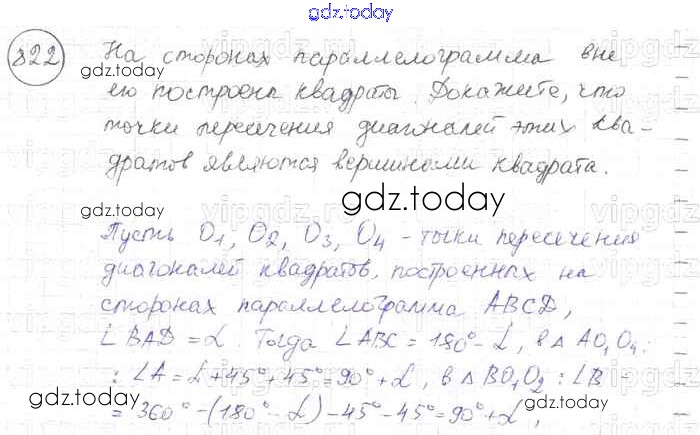 gdz.today
822 На сторонах параллелограмма вне
gdz.today
его построены квадраты. Докажите, что
точки пересечения диагоналей этих ква-
дратов являются вершинами квадрата.
gdz.today
gdz.today
Пусть O1, O2, O3, O4 - точки пересечения
диагоналей квадратов, построенных на
сторонах параллелограмма ABCD,
∠BAD = α. Тогда ∠ABC = 180° - α, в △ AO1O4:
gdz.today
: ∠A = α + 45° + 45° = 90° + α, в △ BO1O2 : ∠B =
gdz.today
gdz.today
= 360° - (180° - α) - 45° - 45° = 90° + α,